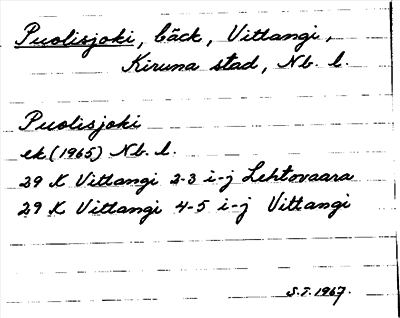 Puolisjoki, bäck, Vittangi,
Kiruna stad, Nb. l.
Puolisjoki
ek (1965) Nb. l.
29 K Vittangi 2-3 i-j Lehtovaara
29 K Vittangi 4-5 i-j Vittangi
S.T. 1967.